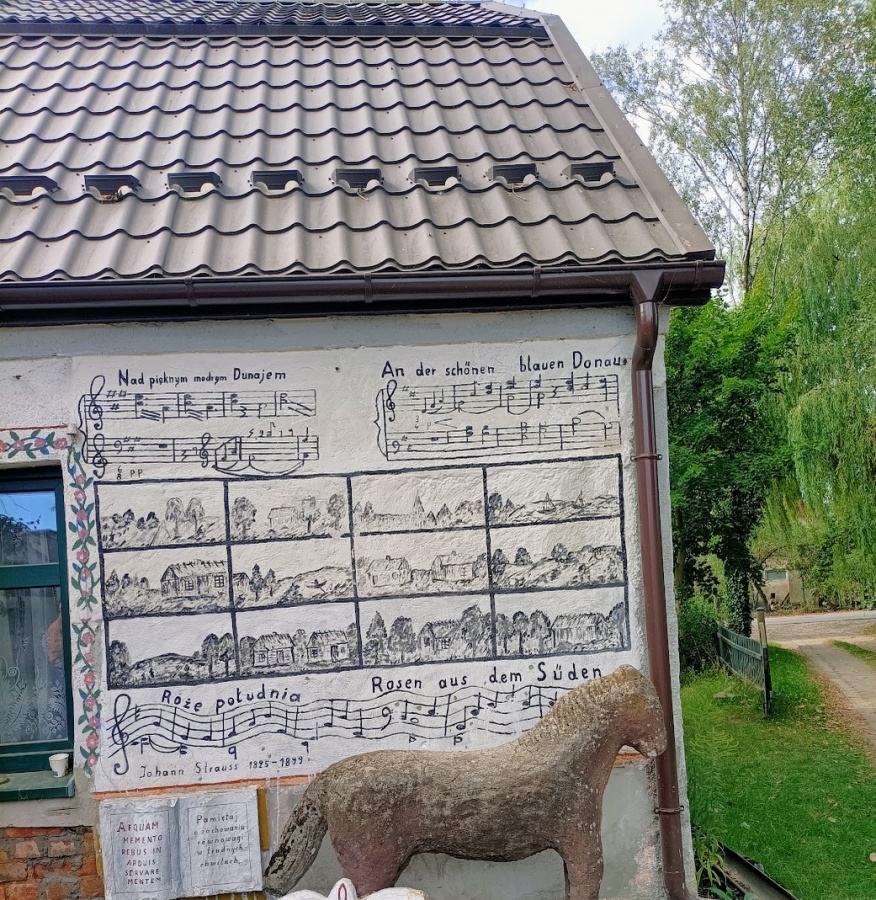 Nad pięknym modrym Dunajem
An der schönen blauen Donau
pp
Róże południa
Rosen aus dem Süden
Johann Strauss 1825-1899
AEQUAM
MEMENTO
REBUS IN
ARDUIS
SERVARE
MENTEM
Pamiętaj
o zachowaniu
równowagi
w trudnych
chwilach.